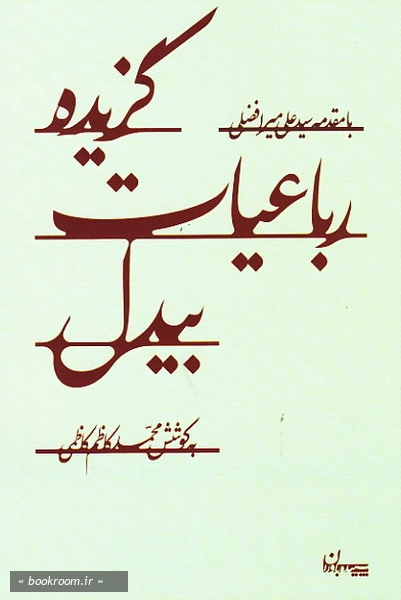 گزیده
با مقدمه سید علی میرافضلی
رباعیات
بیدل
به کوشش محمدکاظم کاظمی
سپیده باوران
« bookroom.ir »